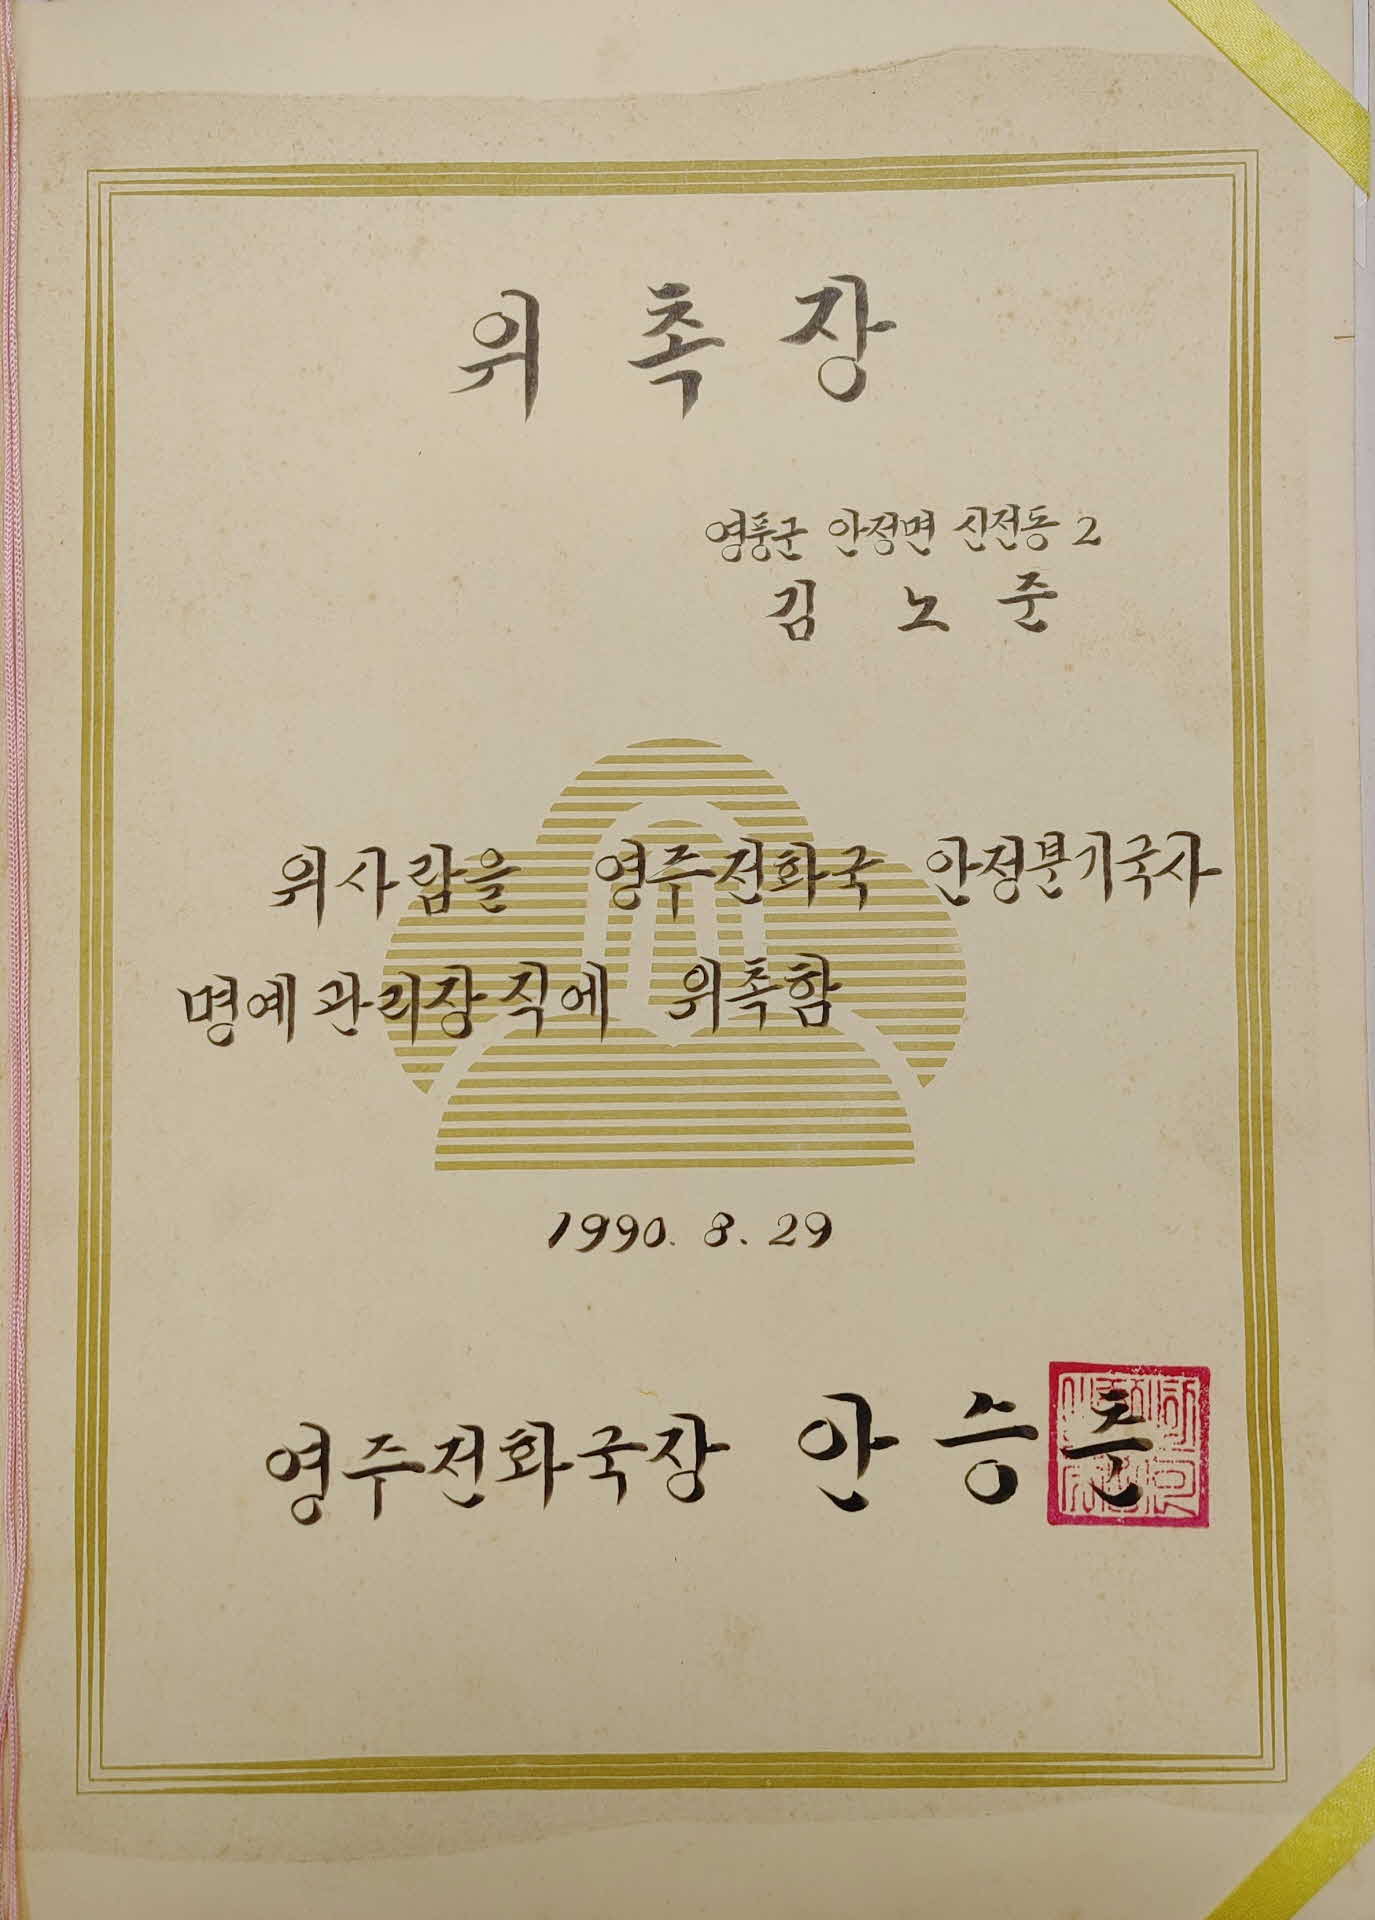 위촉장
영풍군 안정면 신전동 2
김노준
위사람을 영주전화국 안정분기국사
명예관리장직에 위촉함
1990. 8. 29
영주전화국장 안승춘